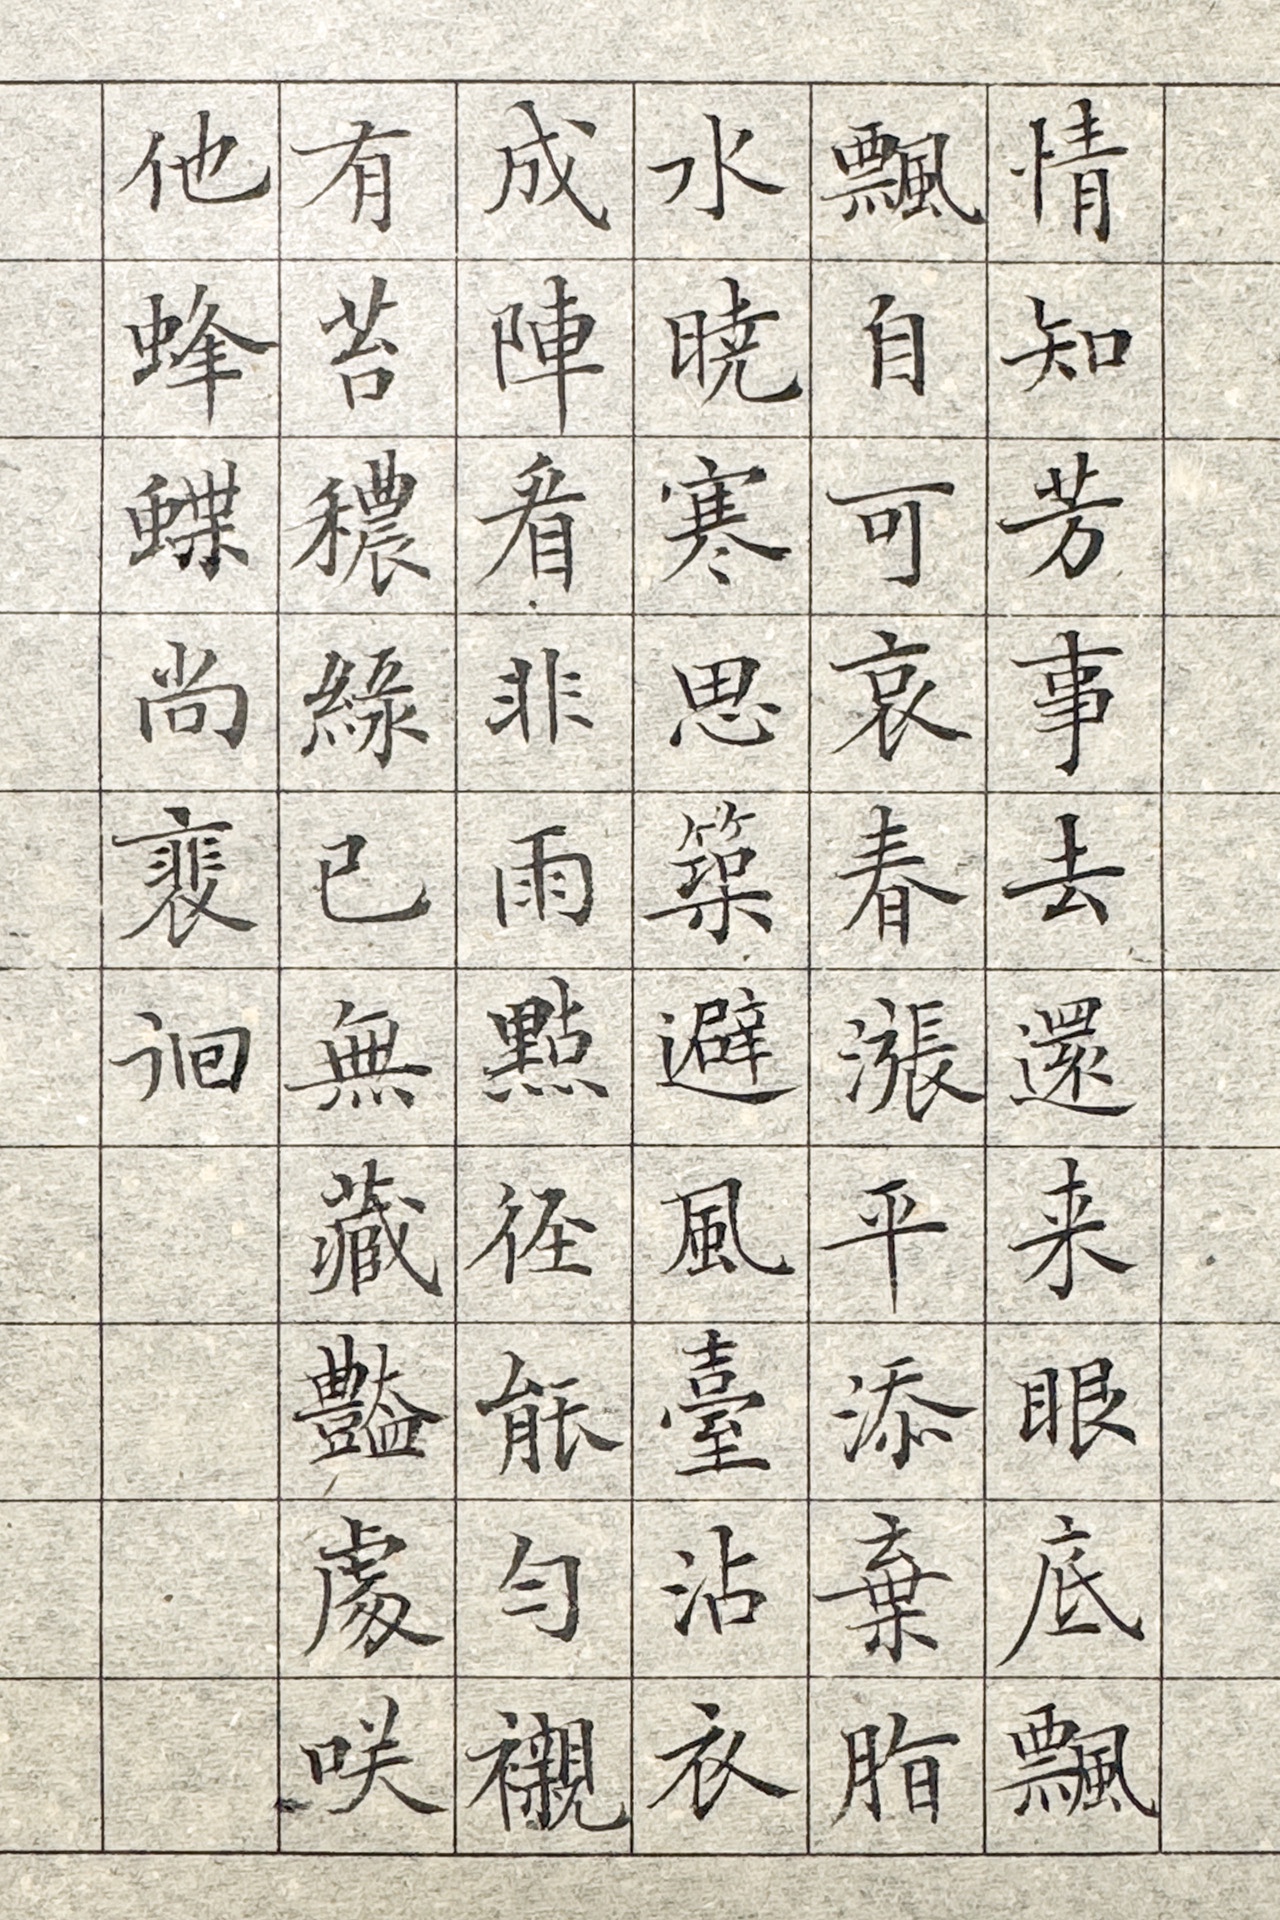 情知芳事去還来眼底飄
飄自可哀春漲平添棄脂
水曉寒思築避風臺沾衣
成陣看非雨點徑能勻襯
有苔穠綠已無藏豔處咲
他蜂蝶尚裴徊